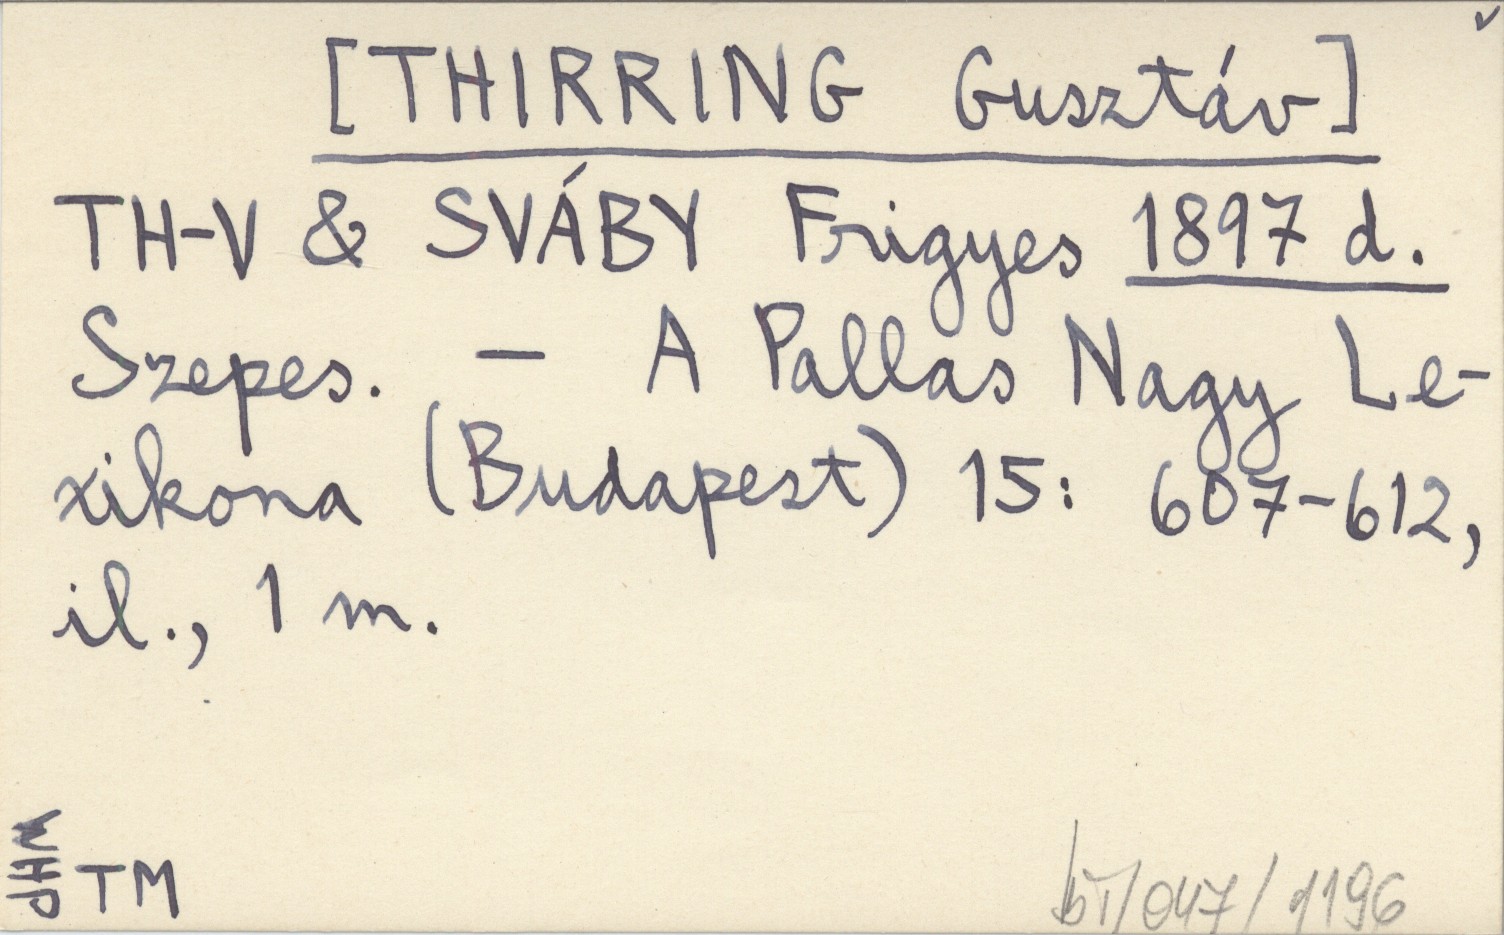 [THIRRING Gusztáv]
TH-V & SVÁBY Frigyes 1897 d.
Szepes. – A Pallas Nagy Le-
xikona (Budapest) 15: 607-612,
il., 1 m.
JHM
TM
bT/047/1196